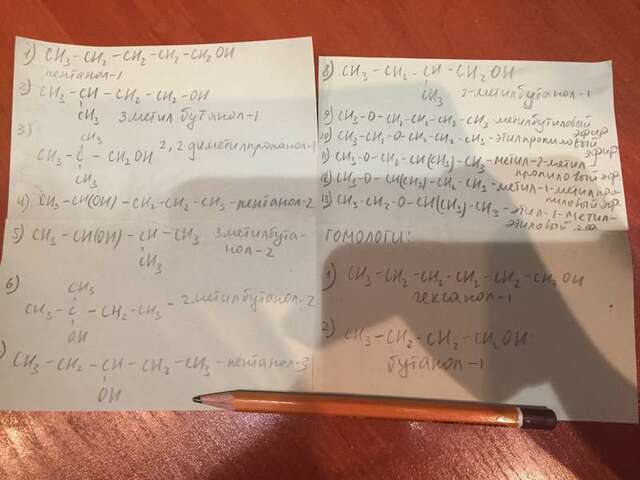 1) CH3-CH2-CH2-CH2-CH2OH
пентанол-1
2) CH3-CH-CH2-CH2-OH
CH3
3метил бутанол-1
3) CH3
CH3-C-CH2OH 2,2 диметилпропанол-1
CH3
4) CH3-CH(OH)-CH2-CH2-CH3-пентанол-2
5) CH3-CH(OH)-CH-CH3 3метилбута-
нол-2
CH3
6) CH3
CH3-C-CH2-CH3-2.метилбутанол-2
OH
) CH3-CH2-CH-CH2-CH3-пентанол-3
OH
8) CH3-CH2-CH-CH2OH
CH3 2-метилбутанол-1
9) CH3-O-CH2-CH2-CH2-CH3 метилбутиловый
эфир
10) CH3-CH2-O-CH2-CH2-CH3-этилпропиловый
эфир
11) CH3-O-CH2-CH(CH3)-CH3-метил-2-метил
пропиловый эф.
12) CH3-O-CH(CH3)-CH2-CH3-метил-1-метил про
пиловый эф.
13) CH3-CH2-O-CH(CH3)-CH3-этил-1-метил-
этиловый э.ф
ГОМОЛОГИ:
1) CH3-CH2-CH2-CH2-CH2-CH2OH
гексанол-1
2) CH3-CH2-CH2-CH2OH
бутанол-1